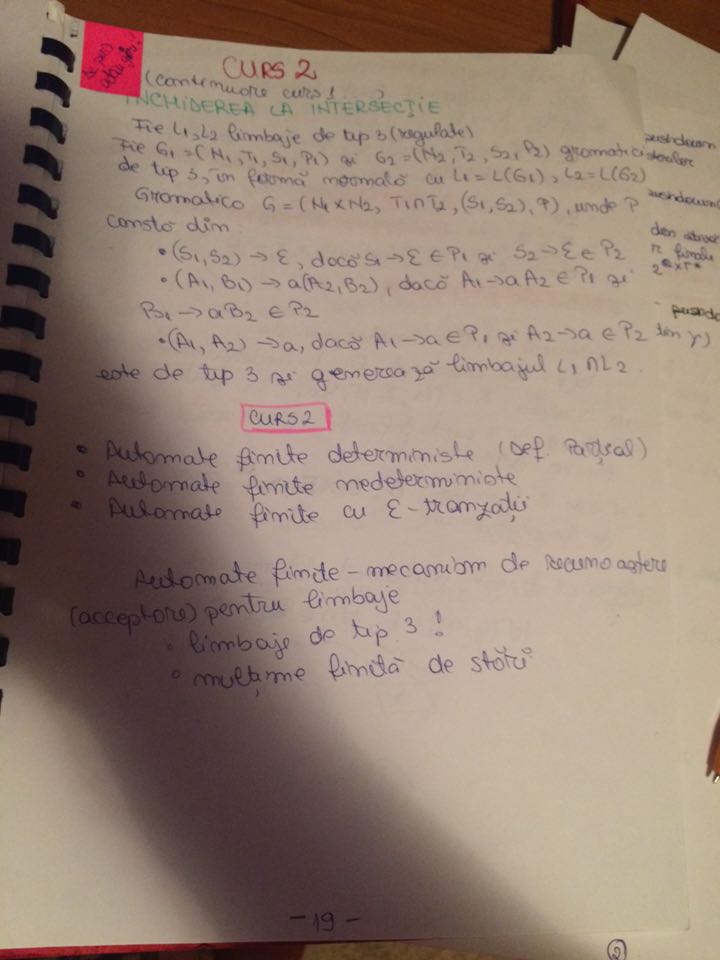 CURS 2
(continuare curs 1
ÎNCHIDEREA LA INTERSECȚIE
Fie L1, L2 limbaje de tip 3 (regulate)
Fie G1 = (N1, T1, S1, P1) și G2 = (N2, T2, S2, P2) gramatici
de tip 3, în formă normală cu L1 = L(G1), L2 = L(G2)
Gramatica G = (N1 × N2, T1 ∩ T2, (S1, S2), P), unde P
constă din:
• (S1, S2) → ε, dacă S1 → ε ∈ P1 și S2 → ε ∈ P2
• (A1, B1) → a(A2, B2), dacă A1 → a A2 ∈ P1 și
B1 → a B2 ∈ P2
• (A1, A2) → a, dacă A1 → a ∈ P1 și A2 → a ∈ P2
este de tip 3 și generează limbajul L1 ∩ L2.
CURS 2
• Automate finite deterministe (Def. Parțial)
• Automate finite nedeterministe
• Automate finite cu ε-tranzații
Automate finite - mecanism de recunoaștere
(acceptare) pentru limbaje
• limbaje de tip 3!
• mulțime finită de stări
- 19 -
2
pushdown
pushdown